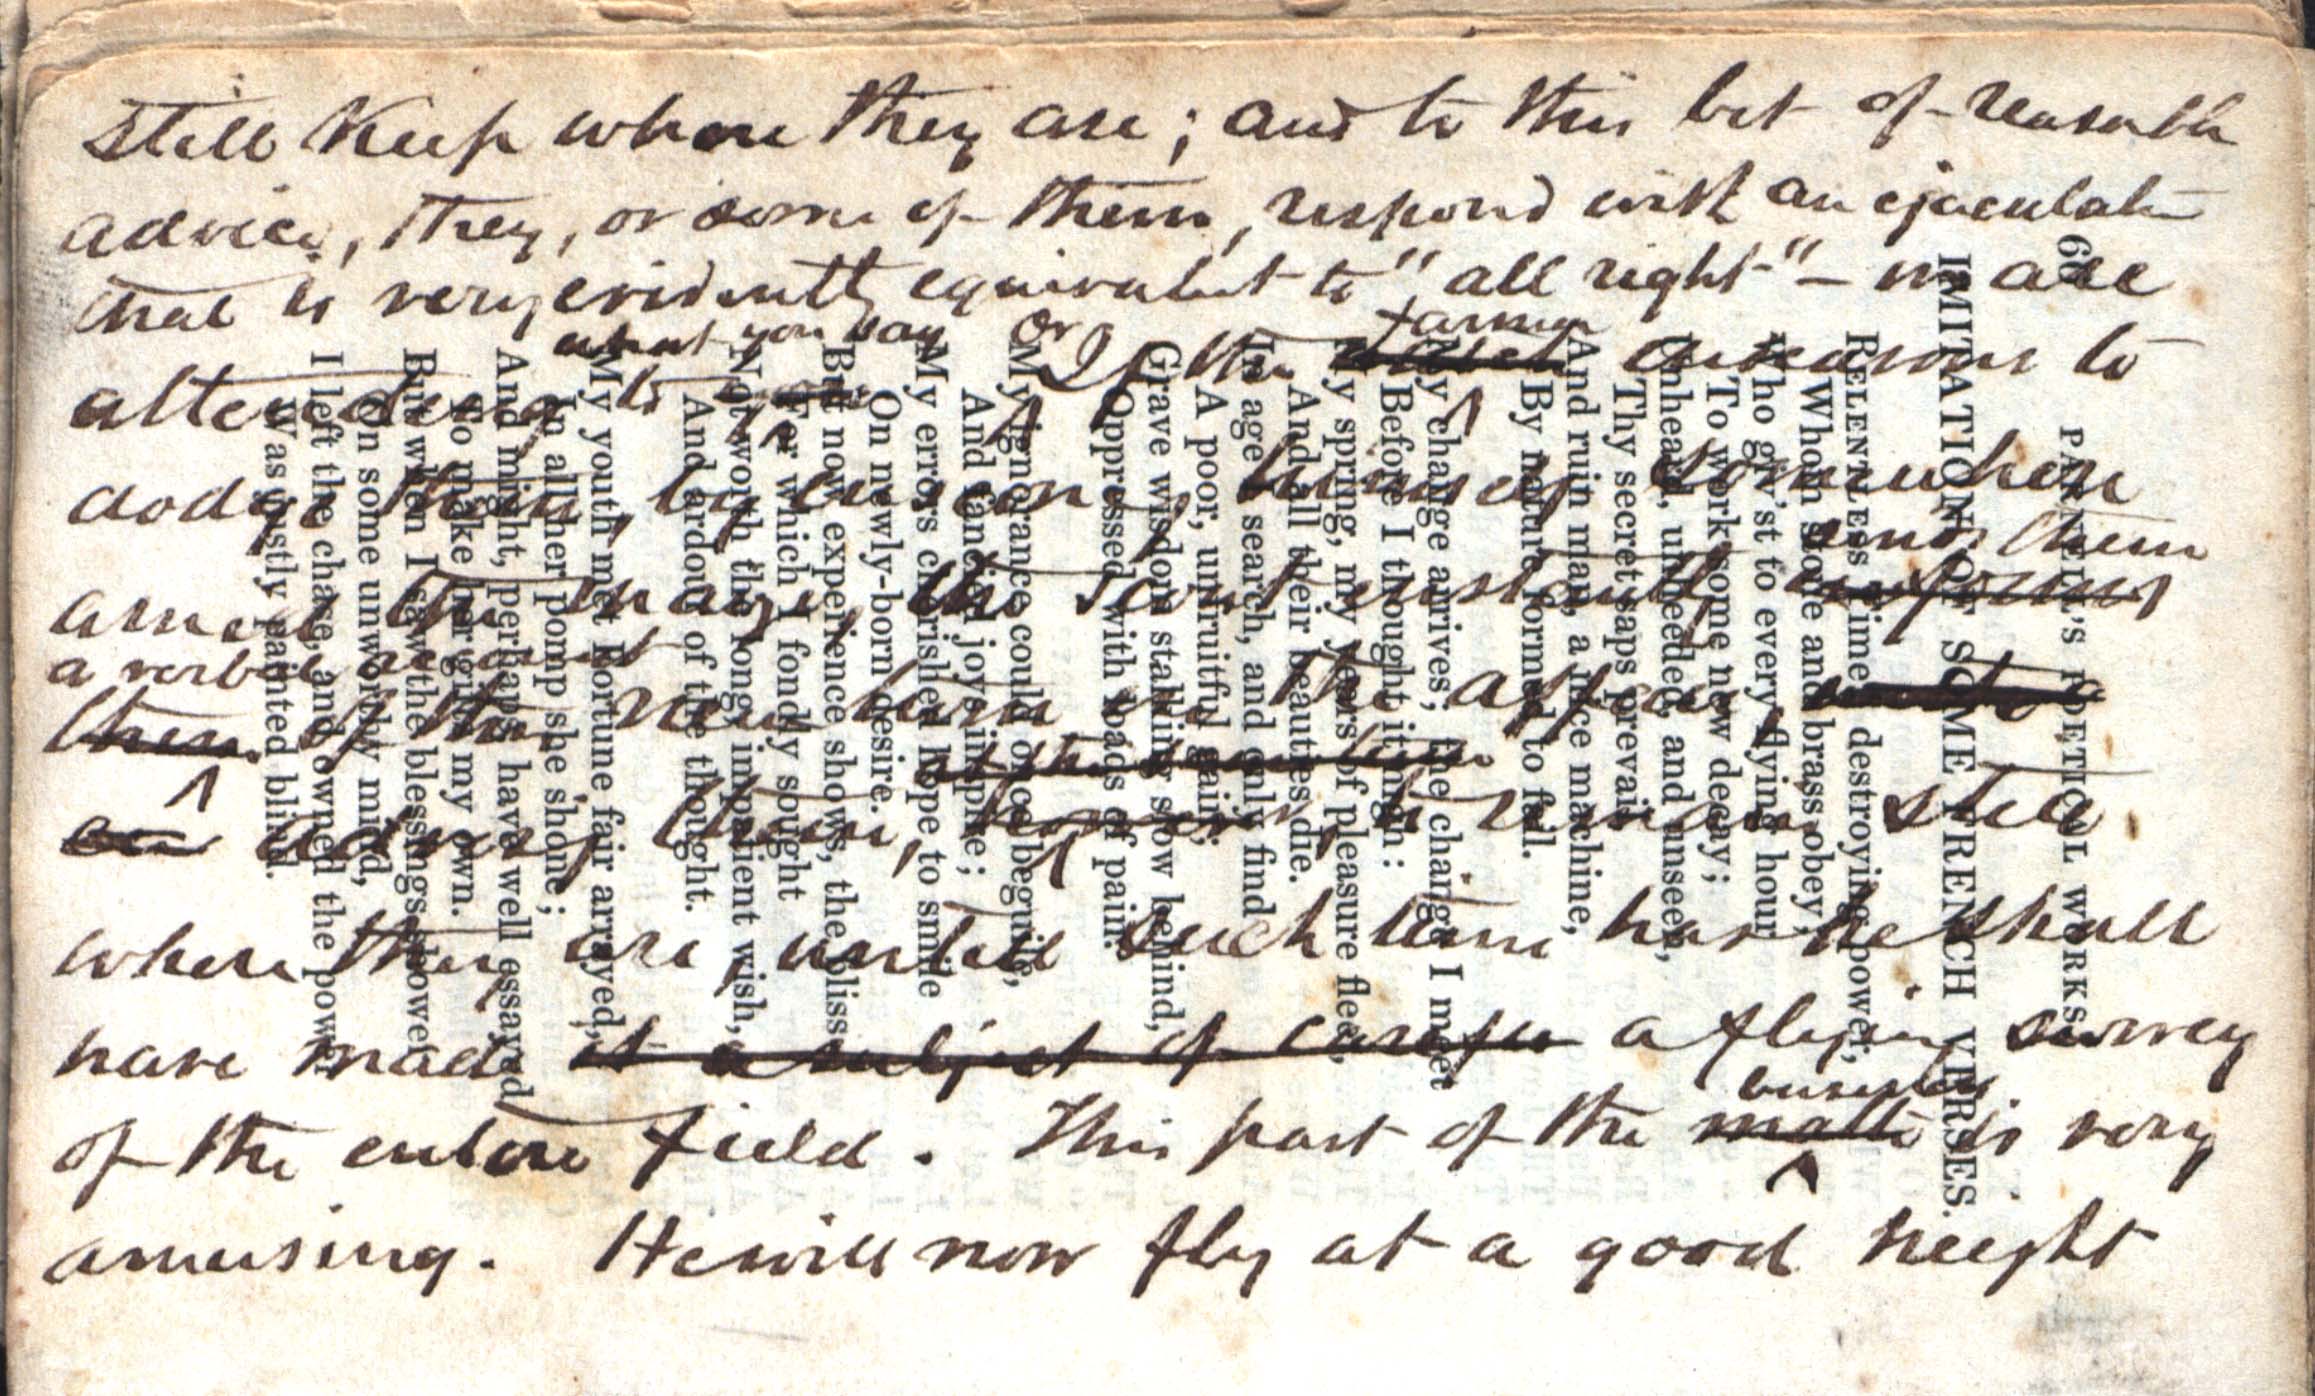 still keep where they are; and to this bit of reasonable
advice, they, or some of them, respond with an ejaculation
that is very evidently equivalent to "all right" – we are
what you say or farmer
attending to If the endeavors to
dodge them, by ensconcing himself somewhere
sends them
amid the maize, the scout instantly informs
a verbal account
them of the new turn in the affair,
at the same time
advising them, to remain still
where they are, until such time has he shall
have made it a subject of careful a flying survey
business
of the entire field. This part of the matter is very
amusing. He will now fly at a good height
62 PARNELL'S POETICAL WORKS.
IMITATION OF SOME FRENCH VERSES.
RELENTLESS Time! destroying power,
Whom stone and brass obey,
Who giv'st to every flying hour
To work some new decay;
Unheard, unheeded, and unseen,
Thy secret saps prevail,
And ruin man, a nice machine,
By nature formed to fail.
My change arrives; the change I meet
Before I thought it nigh:
My spring, my years of pleasure fleet,
And all their beauties die.
In age I search, and only find
A poor, unfruitful gain,
Grave wisdom stalking slow behind,
Oppressed with loads of pain.
My ignorance could once beguile,
And fancied joys inspire;
My errors cherished hope to smile
On newly-born desire.
But now experience shows, the bliss
For which I fondly sought
Not worth the long impatient wish,
And ardour of the thought.
My youth met Fortune fair arrayed,
In all her pomp she shone;
And might, perhaps, have well essayed
To make her gifts my own.
But when I saw the blessings shower
On some unworthy mind,
I left the chase, and owned the power
Was justly painted blind.